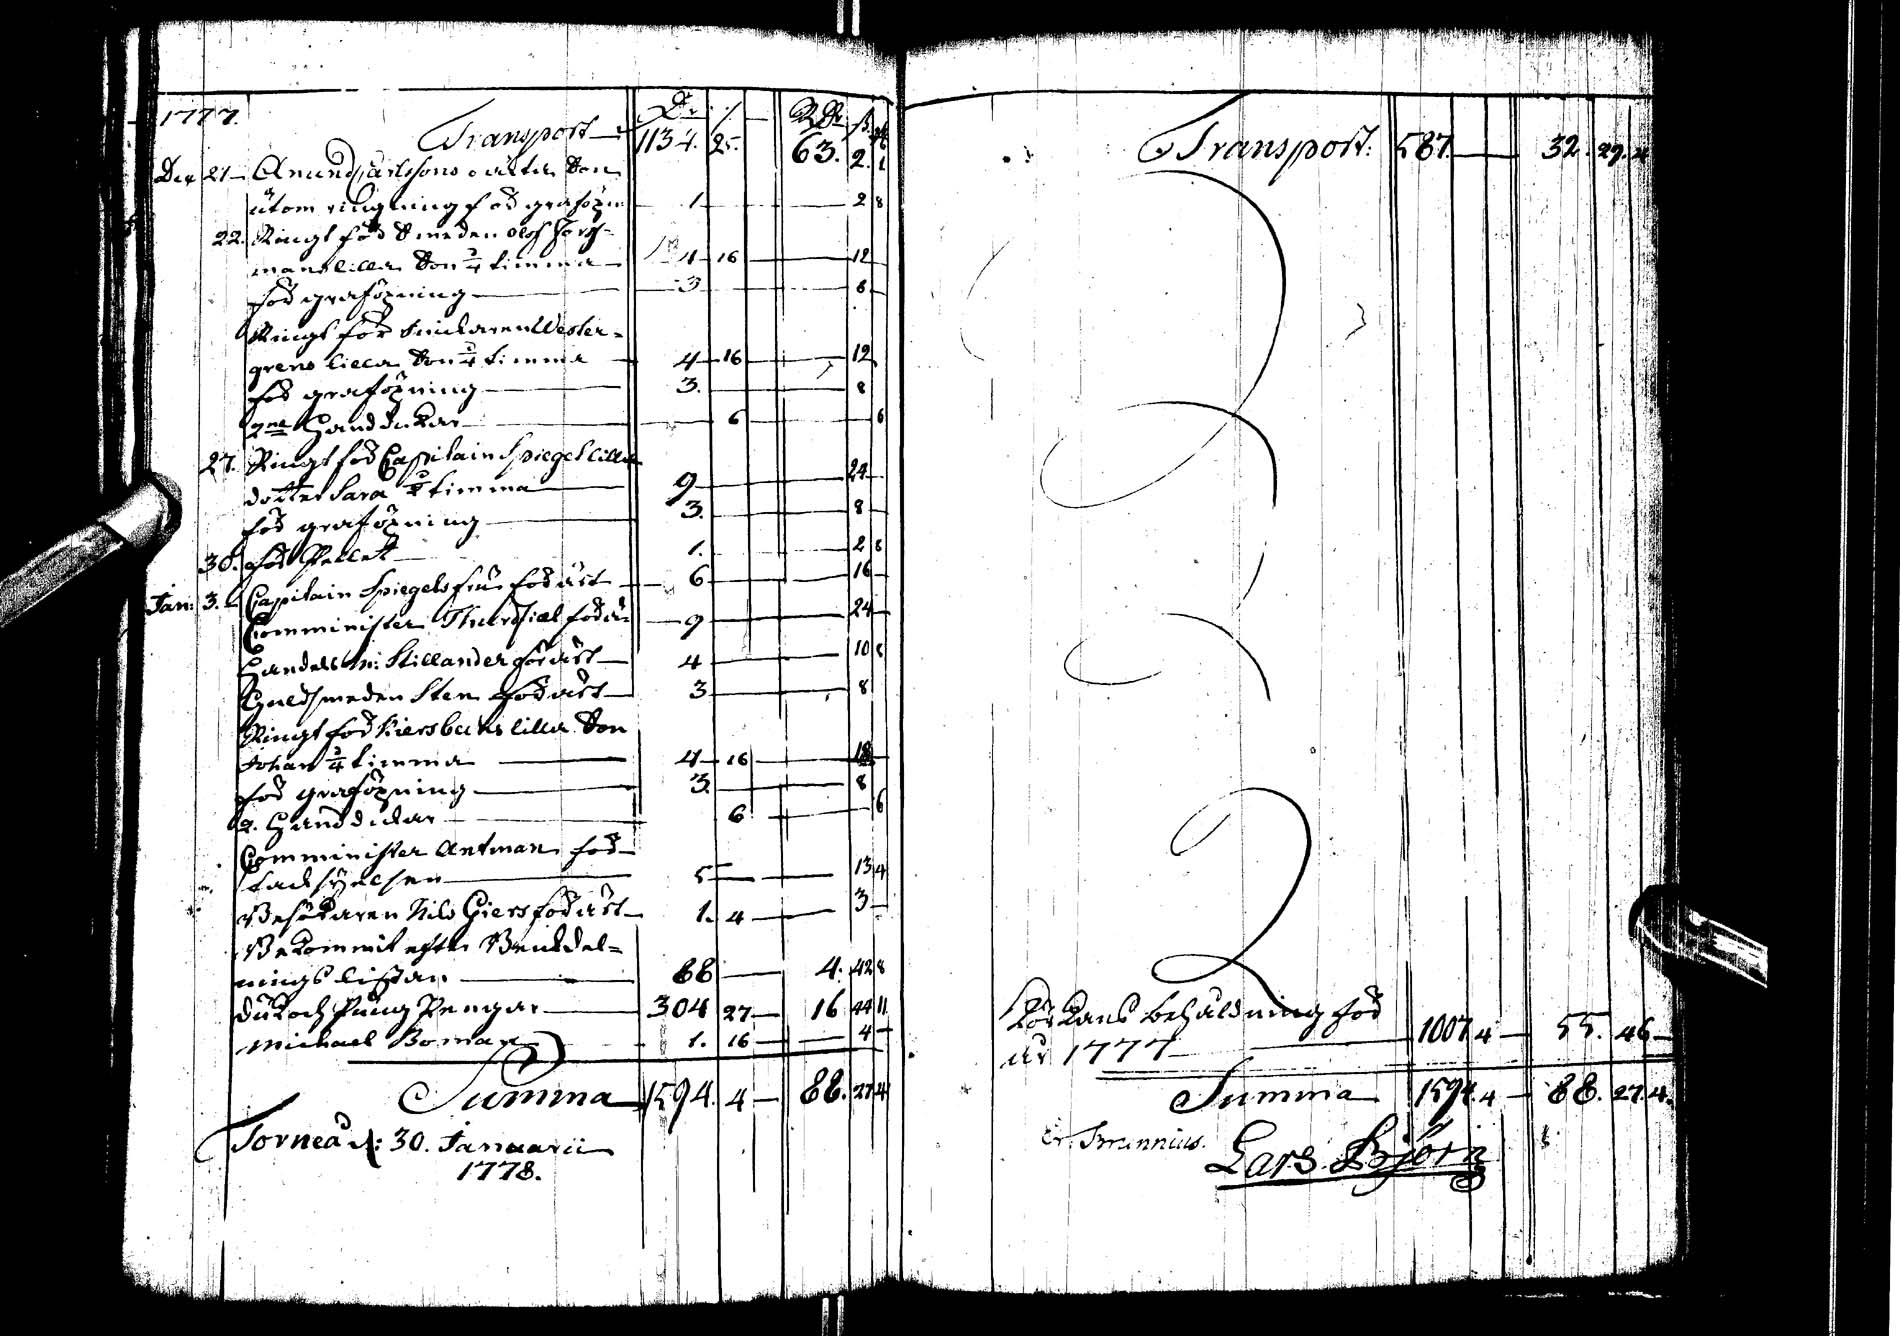 1777.
Dr. /. RDr ß. rst
Transport 1134. 25. 63. 2. 1
Dec 21 Anund Carlssons oäkta Son
utom ringning för graföpn: 1 2 8
22. Ringt för Smeden Olof Fors=
mans lilla Son ¾ timma 4 16 12
för graföpning 3 8
Ringt för Snickaren Wester=
grens lilla Son ¾ timma 4 16 12
för graföpning 3. 8
2ne Handdukar 6 6
27. Ringt för Capitain Spiegels lilla
dotter Sara timma 9 24
för graföpning 3. 8
30. för Pellet 1. 2 8
Jan: 3. Capitain Spiegels fru för året 6 16
Comminister Thurdfiæl för år: 9 24
Handels m: Stillander för året 4 10 8
Guldsmeden Sten för året 3 8
Ringt för Kiersbacks lilla Son
Johan ¾ timma 4 16 12
för graföpning 3. 8
2. Handdukar 6 6
Comminister Antman för
tacksäyelsen 5 13 4
Besökaren Nils Giers för året 1. 4 3
Bekommit efter Bänckdel=
nings listan 88 4. 42 8
Duk och Pung Pengar 304 27 16 44 11
Michael Boman 1. 16 4
Summa 1594. 4 88. 27 4
Torneå d: 30. Januarii
1778.
Transport: 587. 32. 29. 4
Kÿrkans behåldning för
år 1777 1007 4 55. 46
Summa 1594. 4 88. 27. 4.
Er. Brunnius. Lars Björn